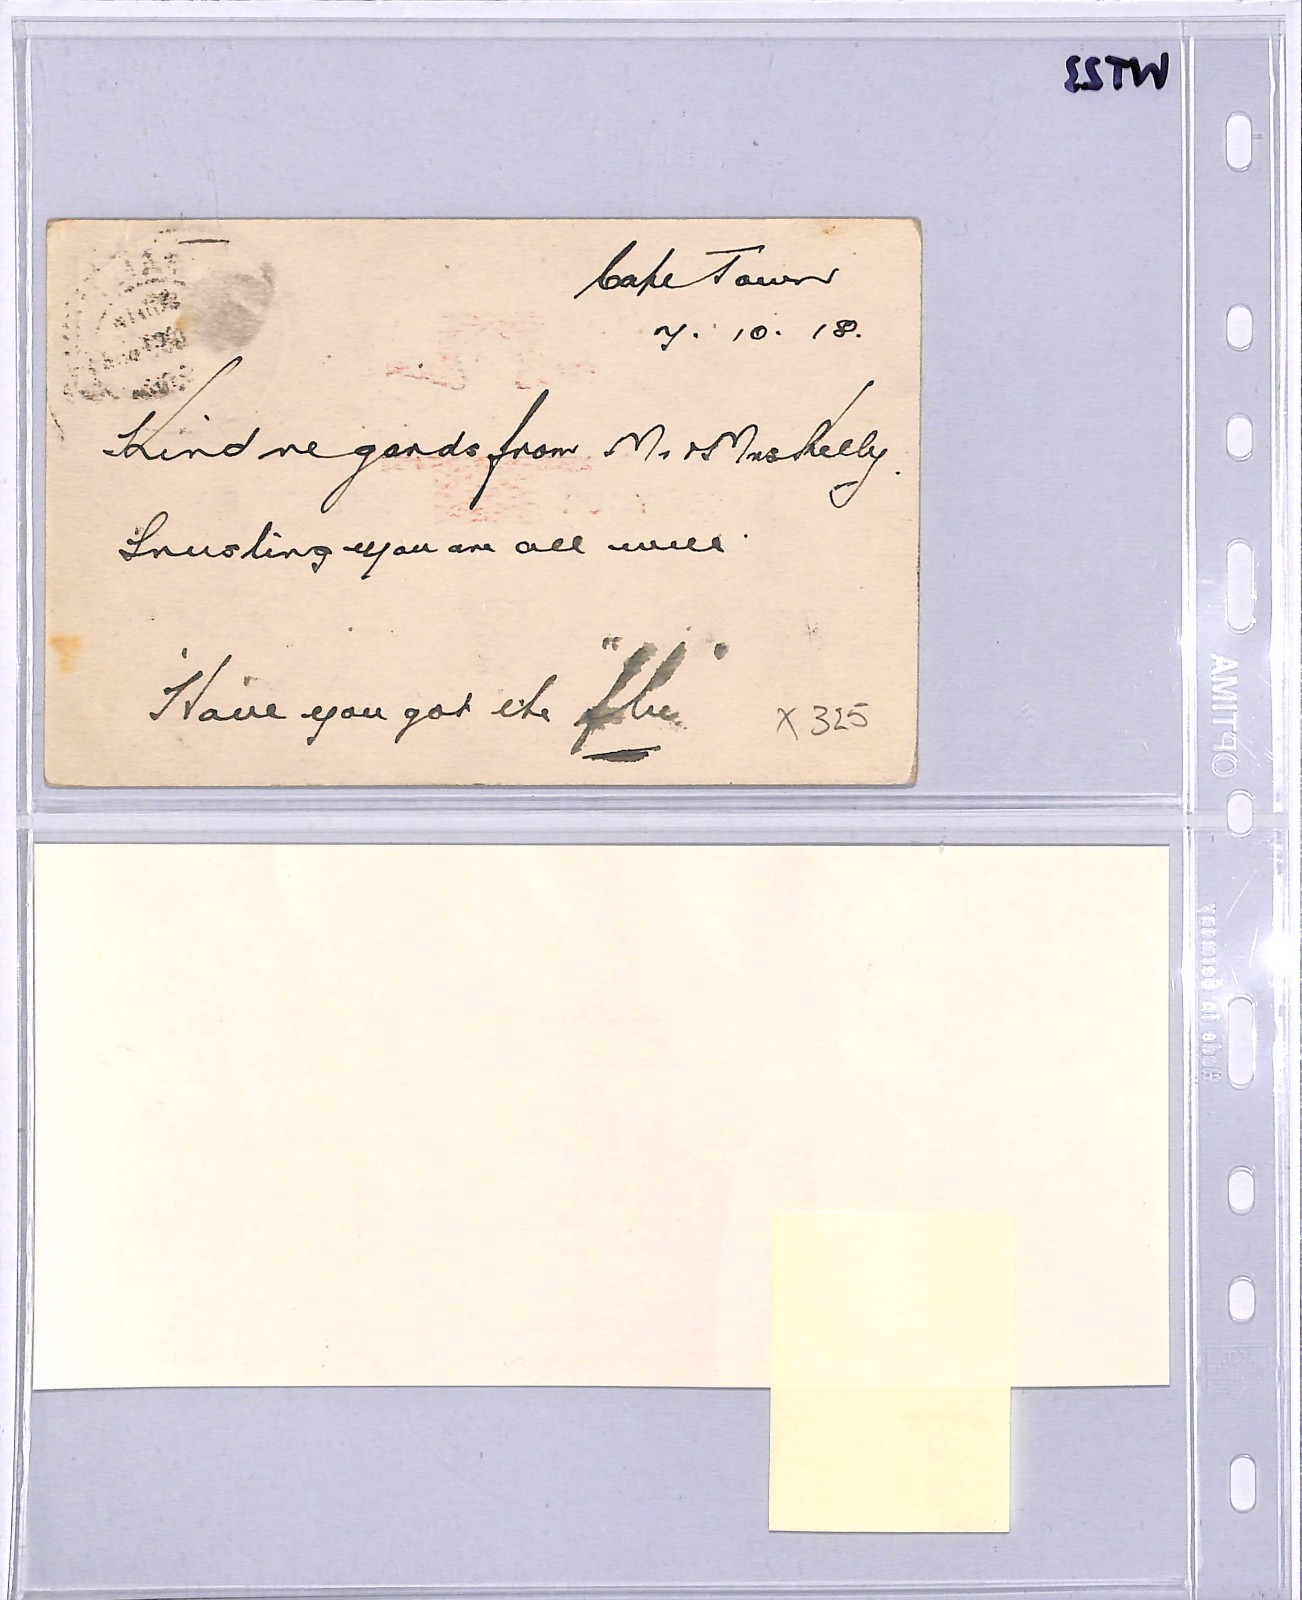 WT22
Cape Town
7. 10. 18.
Kind regards from Mr & Mrs Kelly.
Trusting you are all well.
Have you got the "flu"
X 325
OPTIMA
Made in Germany